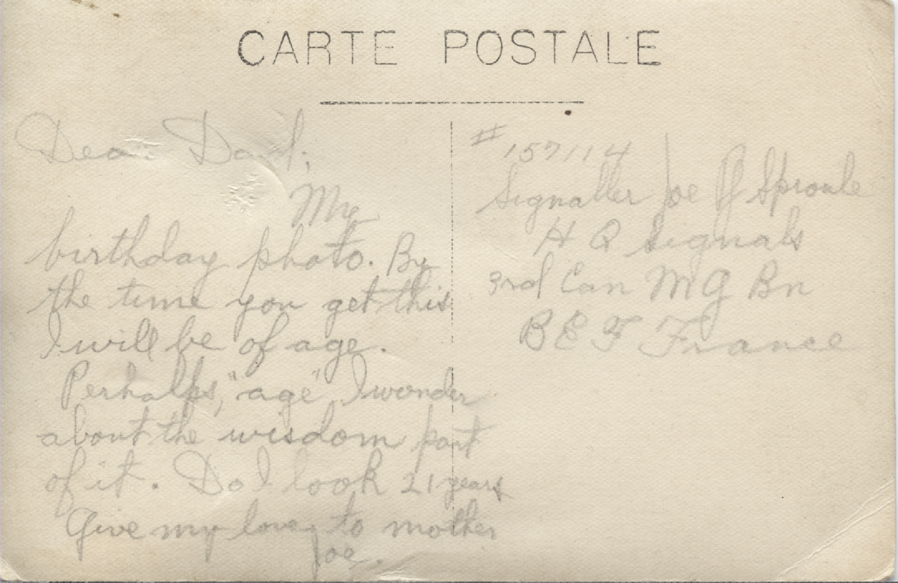 CARTE POSTALE
Dear Dad;
My
birthday photo. By
the time you get this
I will be of age.
Perhalps, "age" I wonder
about the wisdom part
of it. Do I look 21 years
Give my love to mother
Joe.
# 157114
Signaller Joe Sproule
H Q Signals
3rd Can M G Bn
B E F France